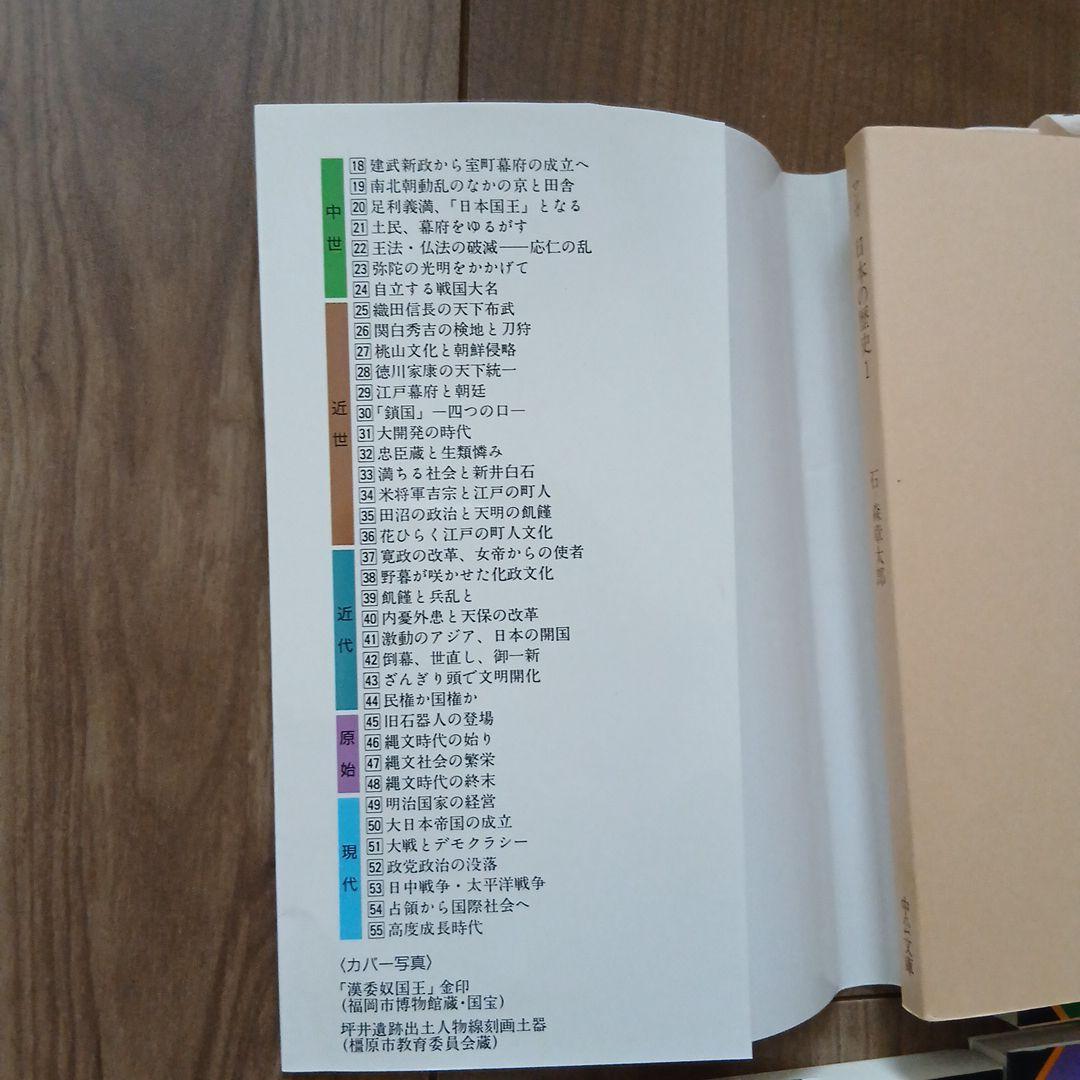 中世
18 建武新政から室町幕府の成立へ
19 南北朝動乱のなかの京と田舎
20 足利義満、「日本国王」となる
21 土民、幕府をゆるがす
22 王法・仏法の破滅――応仁の乱
23 弥陀の光明をかかげて
24 自立する戦国大名
近世
25 織田信長の天下布武
26 関白秀吉の検地と刀狩
27 桃山文化と朝鮮侵略
28 徳川家康の天下統一
29 江戸幕府と朝廷
30 「鎖国」―四つの口―
31 大開発の時代
32 忠臣蔵と生類憐み
33 満ちる社会と新井白石
34 米将軍吉宗と江戸の町人
35 田沼の政治と天明の飢饉
36 花ひらく江戸の町人文化
近代
37 寛政の改革、女帝からの使者
38 野暮が咲かせた化政文化
39 飢饉と兵乱と
40 内憂外患と天保の改革
41 激動のアジア、日本の開国
42 倒幕、世直し、御一新
43 ざんぎり頭で文明開化
44 民権か国権か
原始
45 旧石器人の登場
46 縄文時代の始り
47 縄文社会の繁栄
48 縄文時代の終末
現代
49 明治国家の経営
50 大日本帝国の成立
51 大戦とデモクラシー
52 政党政治の没落
53 日中戦争・太平洋戦争
54 占領から国際社会へ
55 高度成長時代
〈カバー写真〉
「漢委奴国王」金印
(福岡市博物館蔵・国宝)
坪井遺跡出土人物線刻画土器
(橿原市教育委員会蔵)
日本の歴史 1
石森章太郎
中公文庫